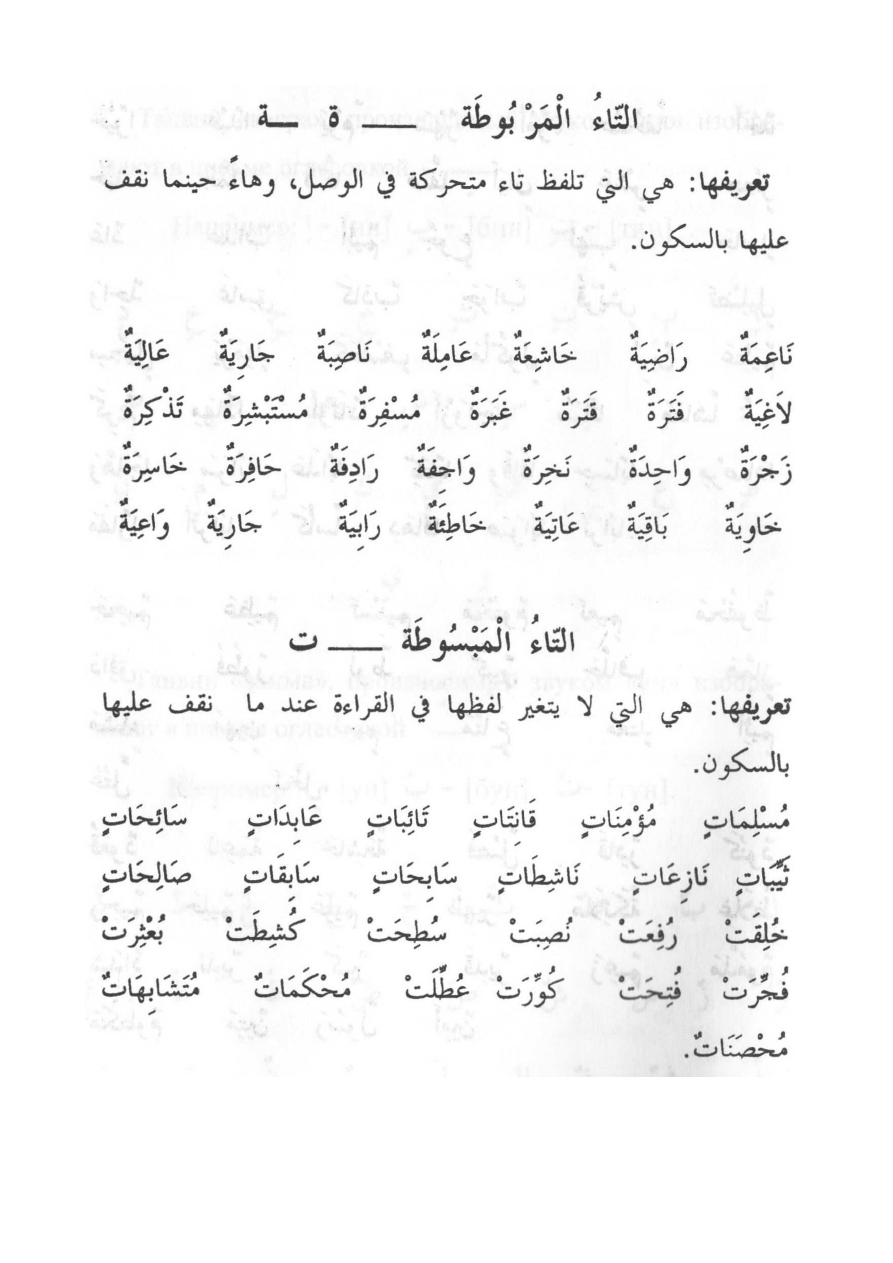 التّاءُ الْمَرْبُوطَة ـــــ ة ــة
تعريفها: هي التي تلفظ تاء متحركة في الوصل، وهاءً حينما نقف
عليها بالسكون.
نَاعِمَةٌ رَاضِيَةٌ خَاشِعَةٌ عَامِلَةٌ نَاصِبَةٌ جَارِيَةٌ عَالِيَةٌ
لاَغِيَةٌ فَتَرَةٌ قَتَرَةٌ غَبَرَةٌ مُسْفِرَةٌ مُسْتَبْشِرَةٌ تَذْكِرَةٌ
زَجْرَةٌ وَاحِدَةٌ نَخِرَةٌ وَاجِفَةٌ رَادِفَةٌ حَافِرَةٌ خَاسِرَةٌ
خَاوِيَةٌ بَاقِيَةٌ عَاتِيَةٌ خَاطِئَةٌ رَابِيَةٌ جَارِيَةٌ وَاعِيَةٌ
التّاءُ الْمَبْسُوطَة ـــــ ت
تعريفها: هي التي لا يتغير لفظها في القراءة عند ما نقف عليها
بالسكون.
مُسْلِمَاتٍ مُؤْمِنَاتٍ قَانِتَاتٍ تَائِبَاتٍ عَابِدَاتٍ سَائِحَاتٍ
ثَيِّبَاتٍ نَازِعَاتٍ نَاشِطَاتٍ سَابِحَاتٍ سَابِقَاتٍ صَالِحَاتٍ
خُلِقَتْ رُفِعَتْ نُصِبَتْ سُطِحَتْ كُشِطَتْ بُعْثِرَتْ
فُجِّرَتْ فُتِحَتْ كُوِّرَتْ عُطِّلَتْ مُحْكَمَاتٌ مُتَشَابِهَاتٌ
مُحْصَنَاتٌ.